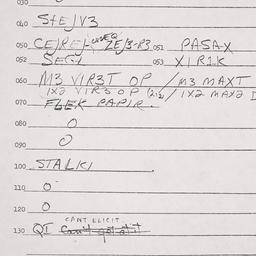 030
040 S+EJV3
050 CEJREJ-UNEQ ZEJ3-R3 051 PASAX
052 SEGJ 053 XIR1K
060 M3 VIR3T OP / M3 MAXT
1X2 VIR3 OP (2:2) / 1X2 MAX2
070 FLEK PAPIR
080 0
090 0
100 STALKI
110 0
120 0
CANT ELICIT
130 QI